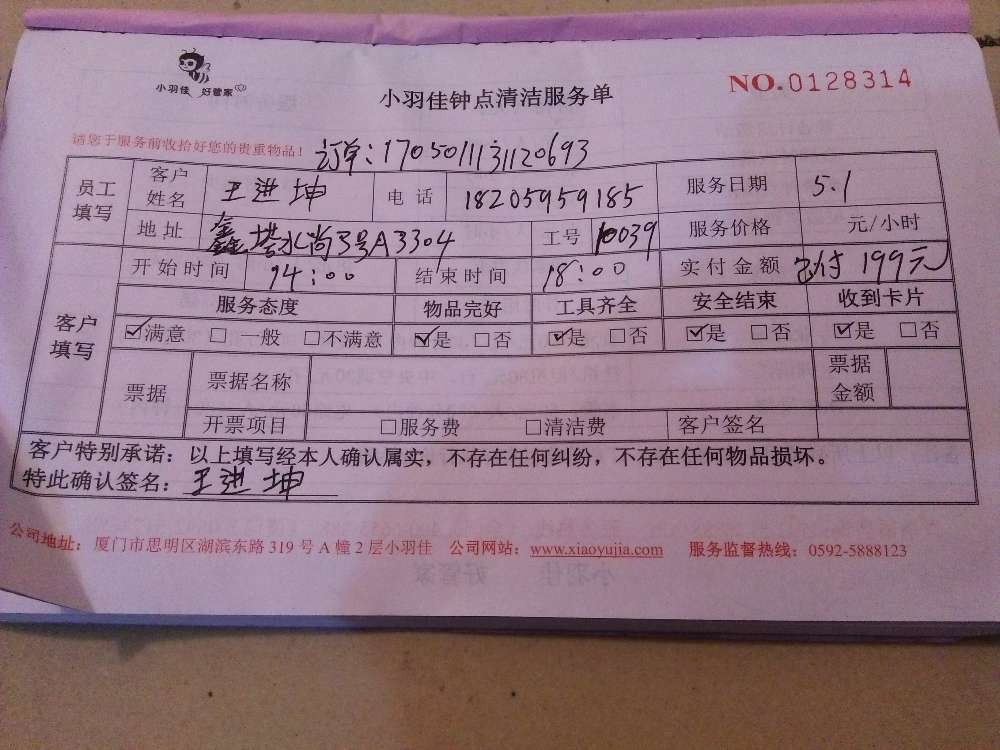 小羽佳 好管家
小羽佳钟点清洁服务单
NO.0128314
请您于服务前收拾好您的贵重物品！
订单:1705011131120693
员工填写 客户姓名 王进坤 电话 18205959185 服务日期 5.1
地址 鑫塔水尚3号A3304 工号 10039 服务价格 元/小时
客户填写 开始时间 14:00 结束时间 18:00 实付金额 已付199元
服务态度 物品完好 工具齐全 安全结束 收到卡片
☑满意 □一般 □不满意 ☑是 □否 ☑是 □否 ☑是 □否 ☑是 □否
票据 票据名称 票据金额
开票项目 □服务费 □清洁费 客户签名
客户特别承诺：以上填写经本人确认属实，不存在任何纠纷，不存在任何物品损坏。
特此确认签名：王进坤
公司地址：厦门市思明区湖滨东路319号A幢2层小羽佳 公司网站：www.xiaoyujia.com 服务监督热线：0592-5888123